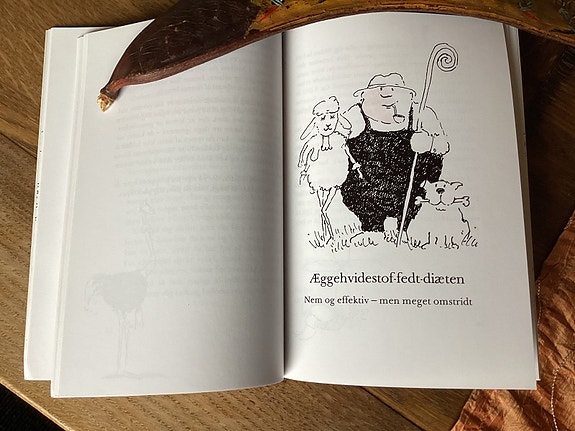 Æggehvidestof-fedt-diæten
Nem og effektiv – men meget omstridt